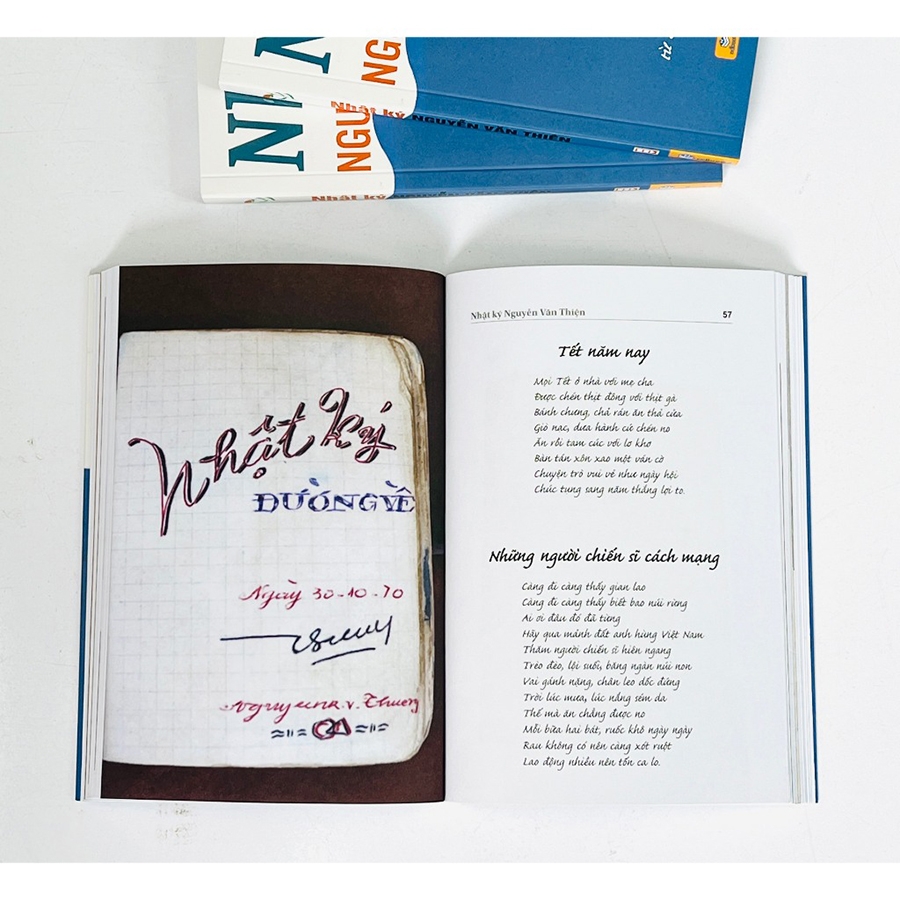 NH
NGU
Nhật ký NGUYỄN VĂN THIỆN
từ
NH
NGU
Nhật ký
Nhật ký
ĐƯỜNG VỀ
Ngày 30-10-70
Nhật ký Nguyễn Văn Thiện 57
Tết năm nay
Mọi Tết ở nhà với mẹ cha
Được chén thịt đông với thịt gà
Bánh chưng, chả rán ăn thả cửa
Giò nạc, dưa hành cứ chén no
Ăn rồi tam cúc với lơ khơ
Bàn tán xôn xao một ván cờ
Chuyện trò vui vẻ như ngày hội
Chúc tụng sang năm thắng lợi to.
Những người chiến sĩ cách mạng
Càng đi càng thấy gian lao
Càng đi càng thấy biết bao núi rừng
Ai ơi đâu đó đã từng
Hãy qua mảnh đất anh hùng Việt Nam
Thăm người chiến sĩ hiên ngang
Trèo đèo, lội suối, băng ngàn núi non
Vai gánh nặng, chân leo dốc đứng
Trời lúc mưa, lúc nắng sém da
Thế mà ăn chẳng được no
Mỗi bữa hai bát, ruốc khô ngày ngày
Rau không có nên càng xót ruột
Lao động nhiều nên tốn ca lo.